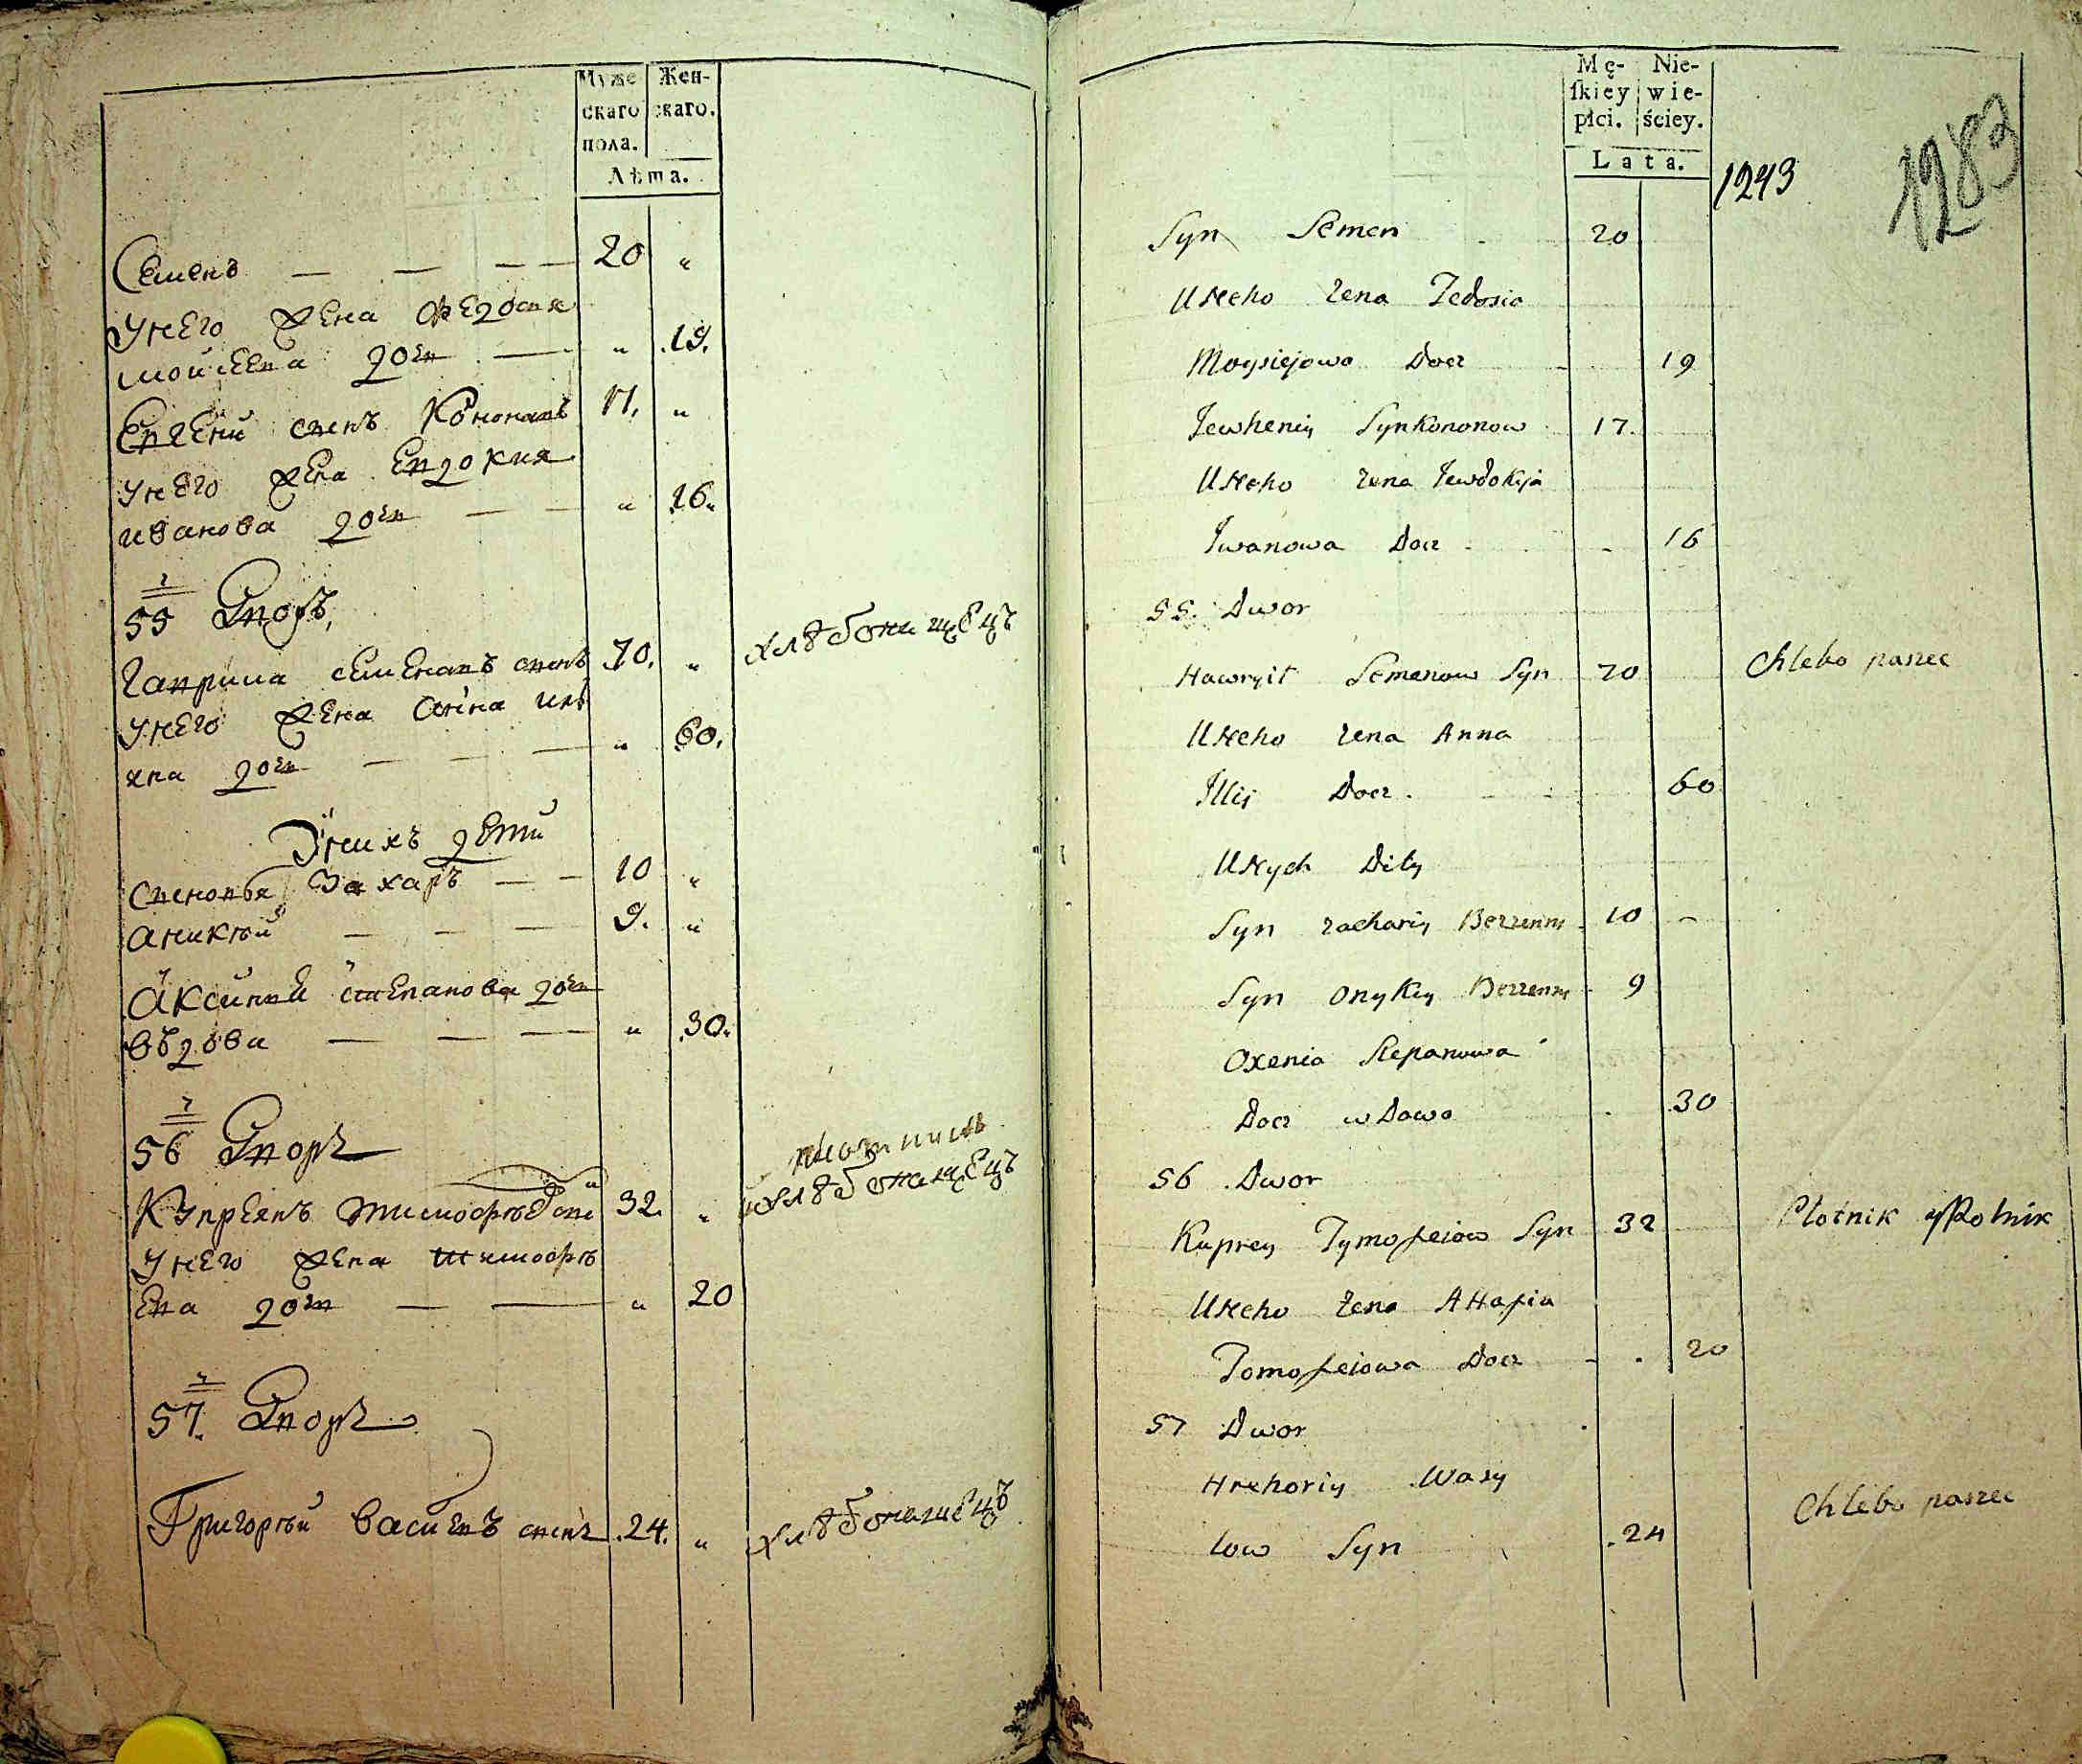 Муже
скаго
пола.
Жен-
скаго.
Лѣта.
Семенъ — — — — 20 "
унего жена Федосия
моисеева дочь — " 19.
Евгени сынъ Кононавъ 17. "
унего жена Евдокия
иванова дочь — — " 16.
55 Дворъ
Гаврила семенавъ сынъ 70. " хлѣбопашецъ
унего жена анна иль
ина дочь — — — " 60.
Унихъ дети
сыновья Захаръ — — 10 "
аникѣй — — — 9. "
Аксинья степанова дочь
въдова — — — " 30.
56 Дворъ
плотникъ
Купреянъ тимофѣевъ сынъ 32. " ихлѣбопашецъ
унего жена тимофѣ
ева дочь — — " 20
57. Дворъ
Григорѣй василевъ сынъ .24. " хлѣбопашецъ
Mę-
ſkiey
płci.
Nie-
wie-
ściey.
Lata.
1243
1283
Syn Semen 20
UNeho żena Fedosia
Moysiejowa Docz 19
Jewheniy Syn Kononow 17
UNeho żena Jewdokija
Jwanowa Docz 16
55. Dwor
Hawryił Semenow Syn 70 Chlebo paszec
UNeho żena Anna
Jllij Docz 60
UNych Dity
Syn zachariy Bezzenny 10
Syn Onykiy Bezzenny 9
Oxenia Stepanowa
Docz wDowa 30
56 Dwor
Kuprey Tymofeiow Syn 32 Plotnik yRolnik
UNeho żena AHafia
Tomofeiowa Docz 20
57 Dwor
Hrehoriy Wasy
low Syn .24 Chlebo paszec